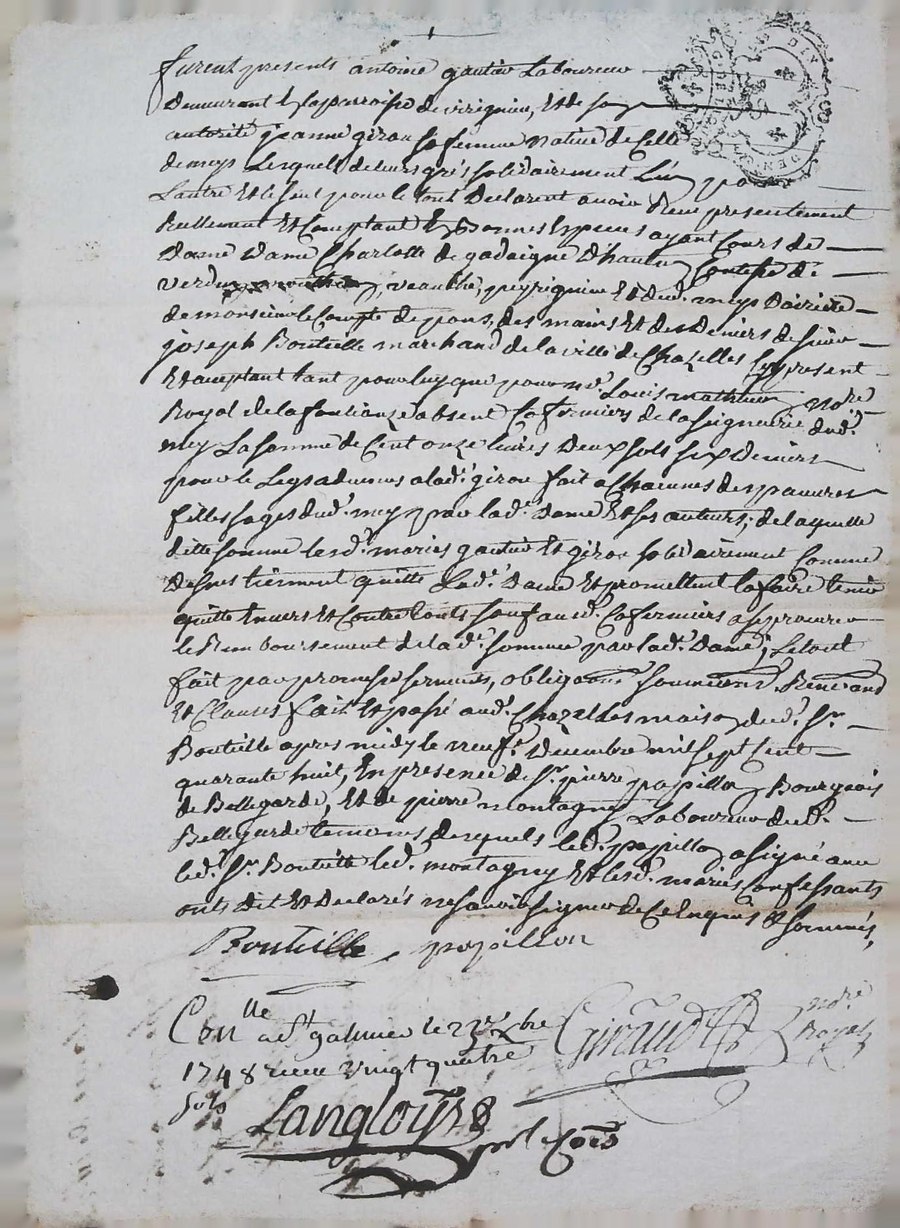 furent presents antoine gautier Laboureur
demeurant En la parroisse de virignieu, Et de son
autorité jeanne girou sa femme native de Celle
de meys Lesquels de leurs grés solidairement L'un po
L'autre Et le seul pour le tout Declarent avoir Reçeu presentement
Reellement Et Comptant En Bonnes Especes ayant Cours de
Dame Dame Charlotte de gadaigne D'hautun Contesse de
verdun, veauche, peyrignieu Et dud. meys Doiriere
de monsieur le Compte de pons, des mains Et des Deniers de sieur
joseph Bouteille marchand de la ville de Chazelles Icy present
Et acceptant tant pour luy que pour me. Louis mathieu nore.
Royal de la fouliouze absent Cofermiers de la seigneurie dud.
mey La somme de Cent onze livres Deux sols six Deniers
pour le Legs advenus a lad. girou fait a Chacunes des pauvres
filles sages dud. mey par lad. Dame Et ses auteurs; de laquelle
ditte somme lesd. mariés gautier Et girou solidairement Comme
Dessus tiennent quitte Lad. Dame Et promettent la faire tenir
quitte Envers Et Contre touts sauf auxd. Cofermiers a se procurer
le Remboursement de lad. somme par lad. Dame; Le tout
fait par promesse serments, obligaons soumions. Renonaons
Et Clauses fait Et passé aud. Chazelles maison dud. Sr.
Bouteille apres midy le neufe. Decembre mil sept Cent
quarante huit, En presence de Sr. pierre papillon Bourgeois
de Bellegarde, Et de pierre montagny Laboureur dud.
Bellegarde temoins desquels led. papillon a signé avec
led. Sr. Bouteille led. montagny Et lesd. mariés Confessants
onts dit Et Declarés ne savoir signer de Ce Enquis & sommés,
Bouteille papillon
Conlle a St galmier le 23e. Xbre
Giraud nore Royal
1748 reçu vingt quatre
sols
Langloÿs
pr le Cois